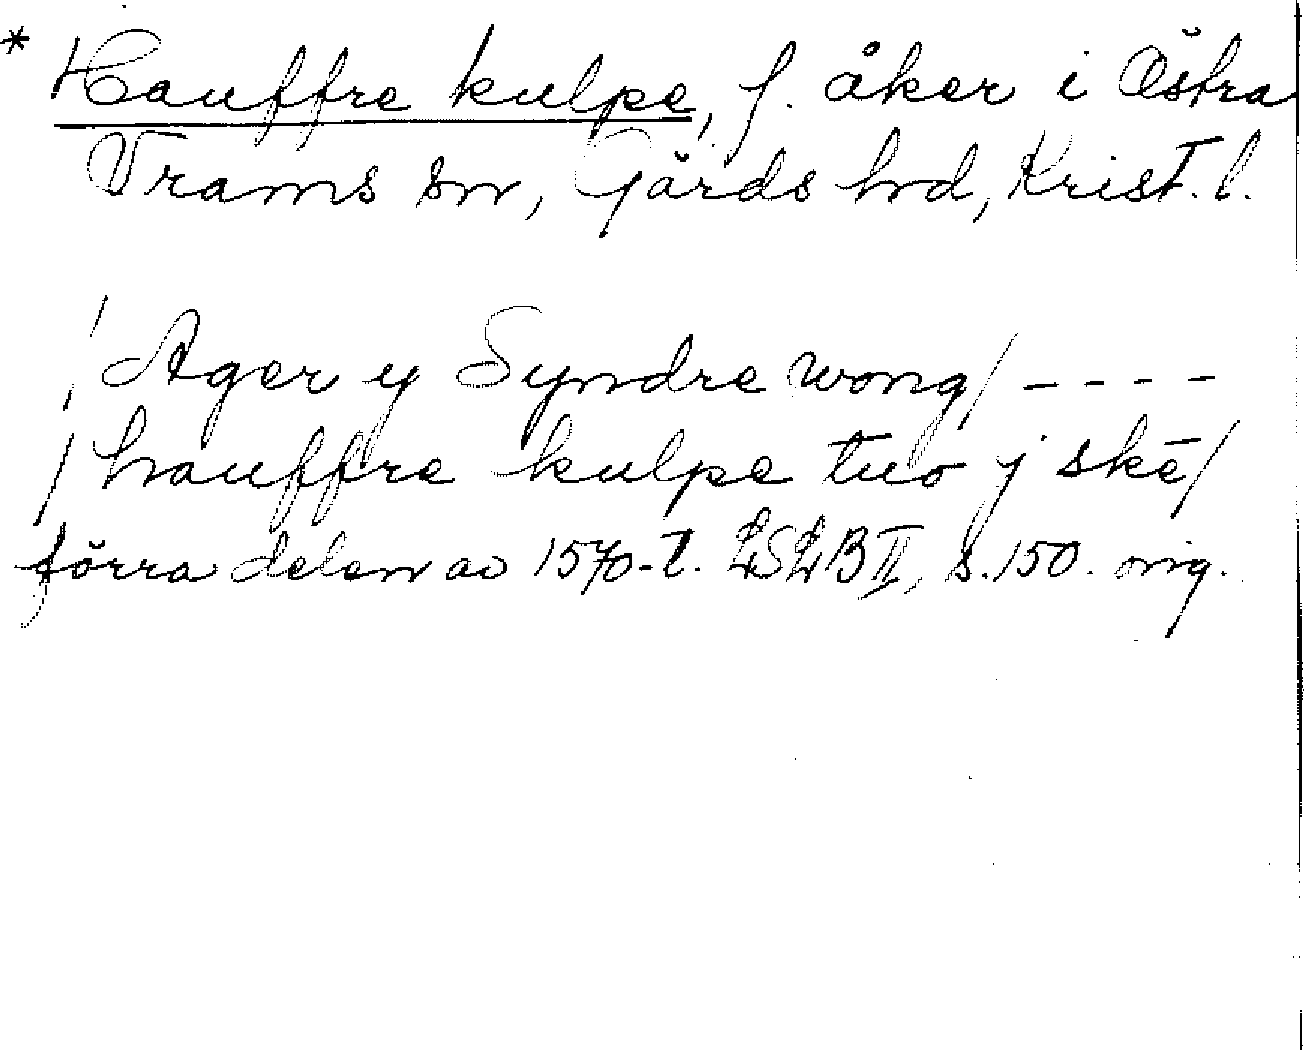 * Hauffre kulpe, f. åker i Östra
Vrams sn, Gärds hd, Krist. l.
/ Ager y Syndre wong/ - - - -
/ hauffre kulpe tuo j skē/
förra delen av 1570-t. LSLB II, s. 150. orig.